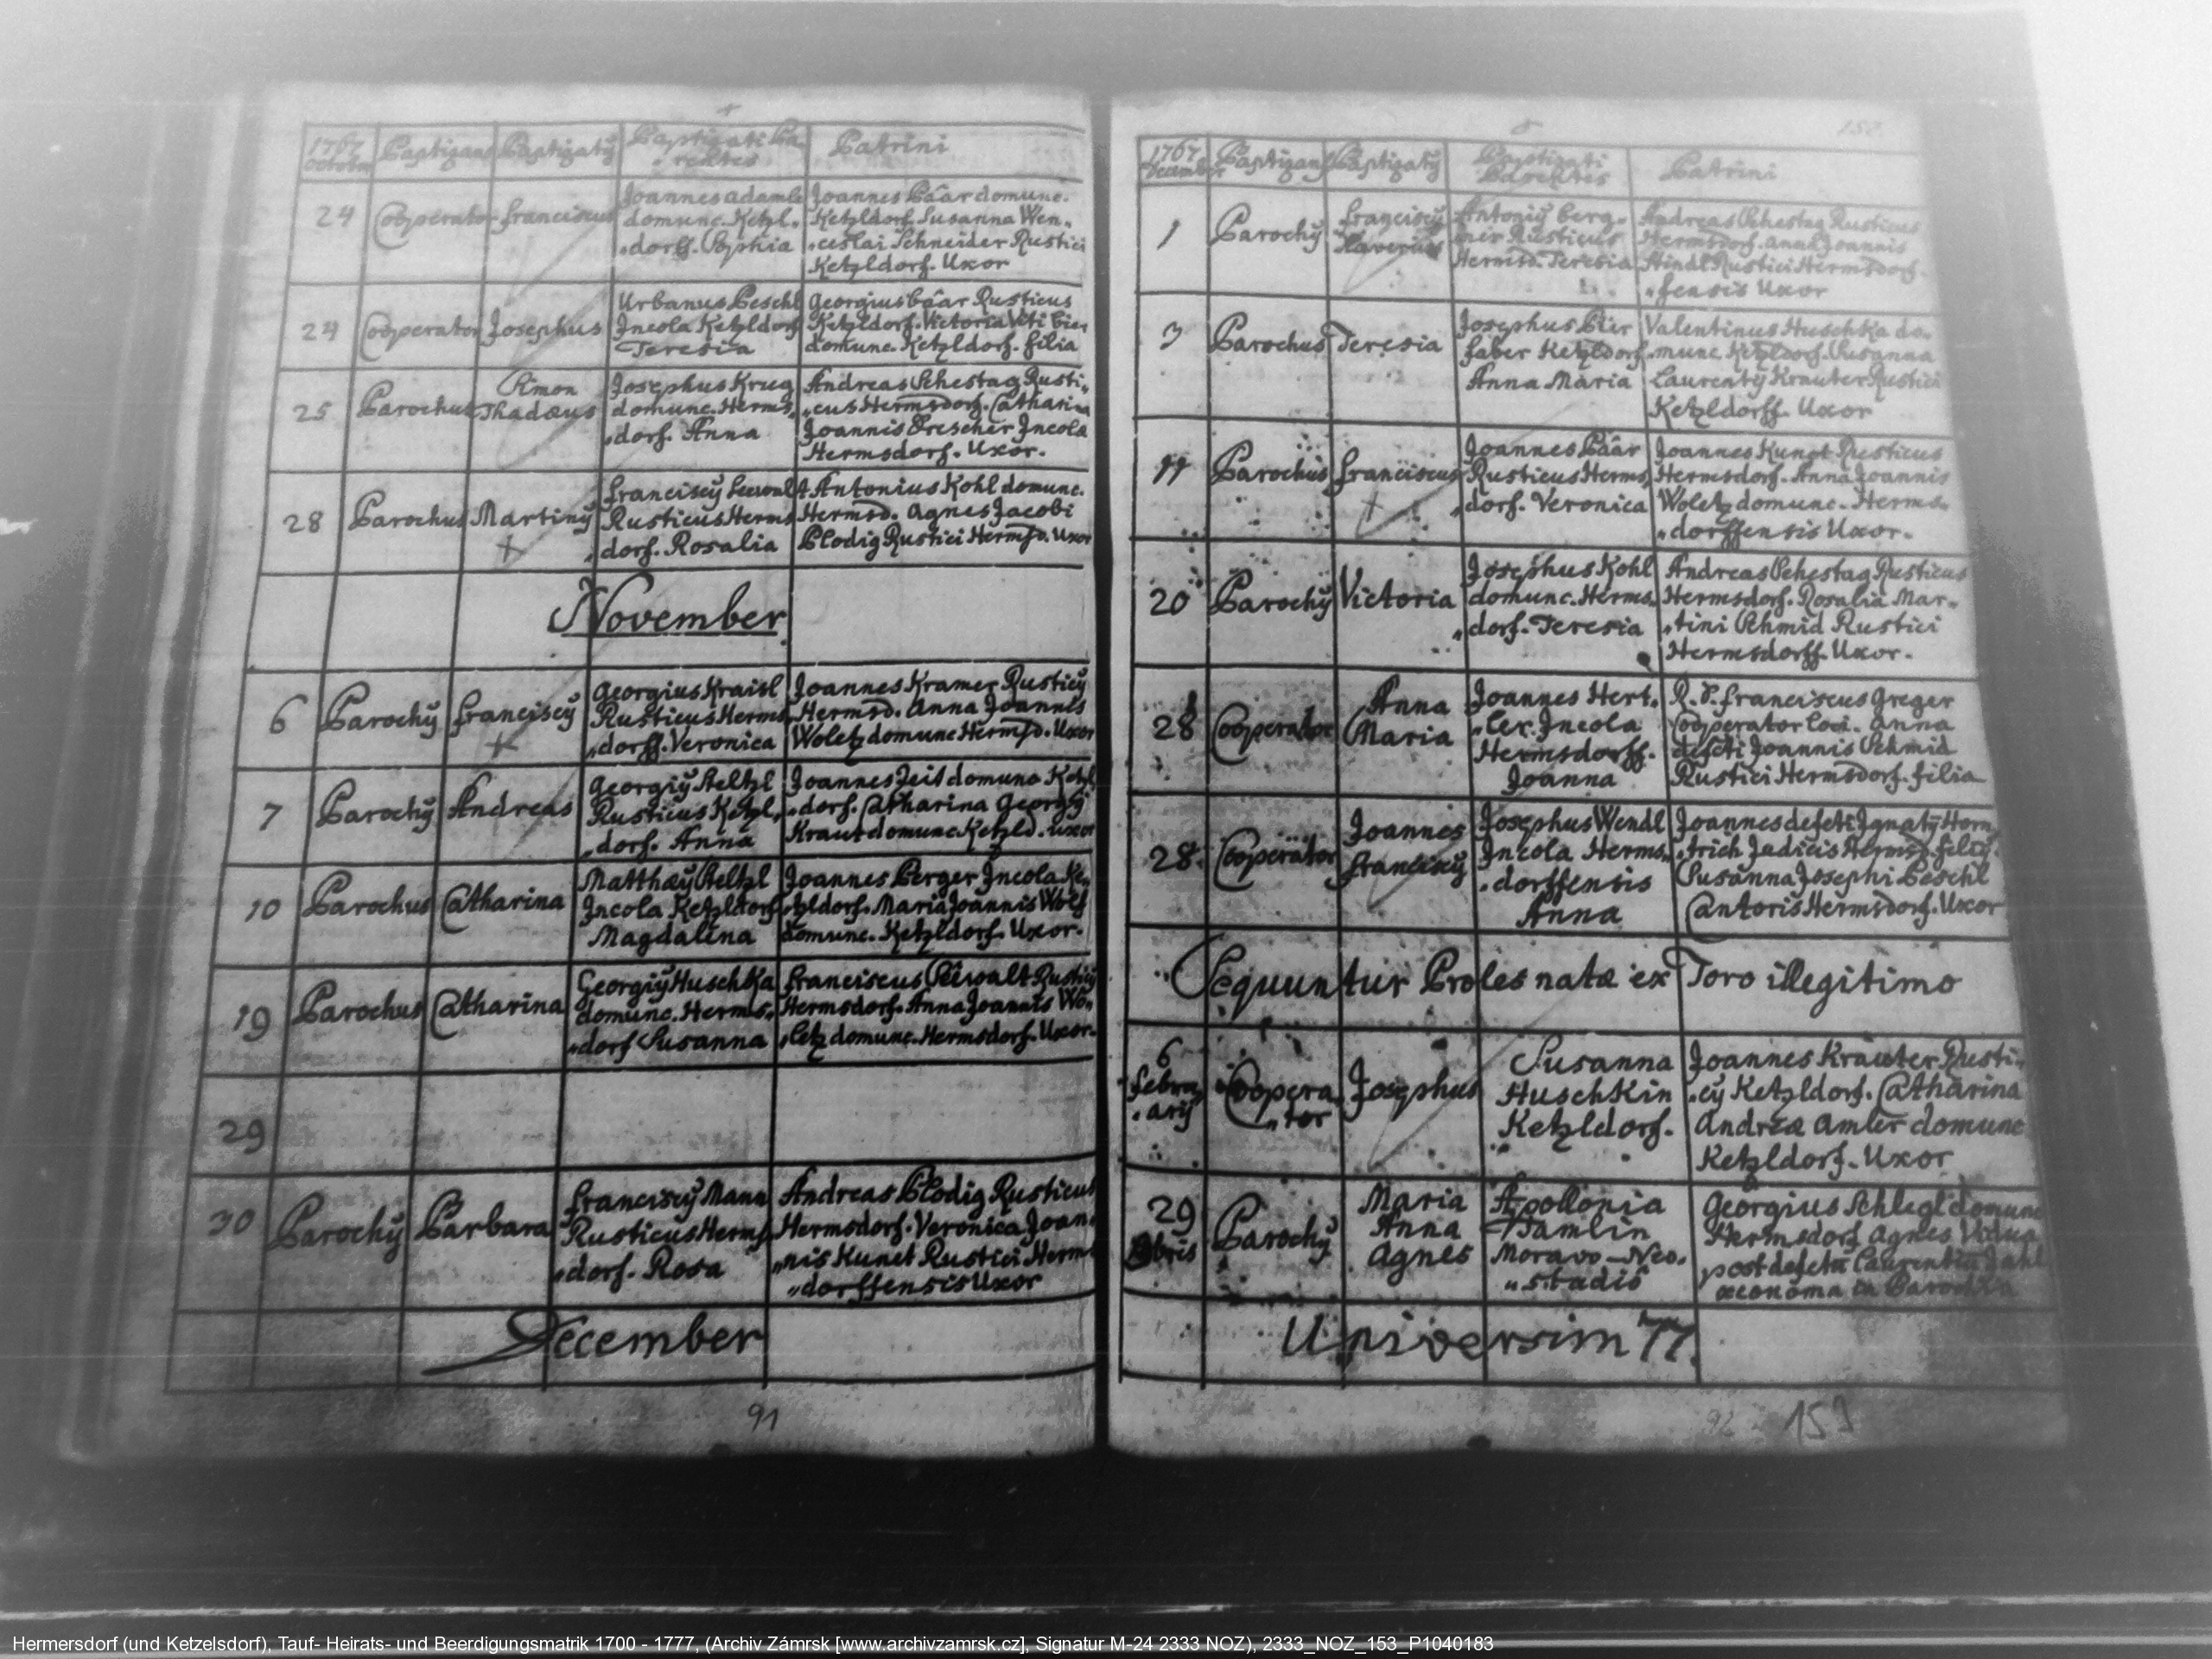 1767 October
Baptizans
Baptizatꝰ
Baptizati Pa-
rentes
Patrini
24
Cooperator
Franciscus
Joannes Adamle
domunc. Ketzl„
„dorff. Sophia
Joannes Päar domunc.
Ketzldorf. Susanna Wen„
„ceslai Schneider Rustici
Ketzldorf. Uxor
24
Cooperator
Josephus
Urbanus Peschl
Incola Ketzldorf
Teresia
Georgius Päar Rusticus
Ketzldorf. Victoria Viti Bier
domunc. Ketzldorf. filia
25
Parochus
Simon
Thadæus
Josephus Krug
domunc. Herms„
„dorf. Anna
Andreas Schestag Rusti„
„cus Hermsdorf. Catharina
Joannis Drescher Incola
Hermsdorf. Uxor.
28
Parochus
Martinÿ
Franciscÿ Seewalt
Rusticus Herms
„dorf. Rosalia
Antonius Kohl domunc.
Hermsd. Agnes Jacobi
Plodig Rustici Hermsd. Uxor
November
6
Parochÿ
Franciscÿ
Georgius Kraisl
Rusticus Herms„
„dorff. Veronica
Joannes Kramer Rusticÿ
Hermsd. Anna Joannes
Woletz domunc Hermsd. Uxor
7
Parochÿ
Andreas
Georgiÿ Steltzl
Rusticus Ketzl„
„dorf. Anna
Joannes Zeis domunc Ketzl
„dorf. Catharina Georgÿ
Kraut domunc Ketzld. uxor
10
Parochus
Catharina
Matthæÿ Steltzl
Incola Ketzldorf
Magdalena
Joannes Berger Incola Ke„
„tzldorf. Maria Joannis Wolf
domunc. Ketzldorf. Uxor.
19
Parochus
Catharina
Georgiÿ Huschka
domunc. Herms„
„dorf Susanna
Franciscus Seewalt Rusticÿ
Hermsdorf. Anna Joannis Wo„
„letz domunc. Hermsdorf. Uxor.
29
30
Parochÿ
Barbara
Franciscÿ Mann
Rusticus Herms
„dorf. Rosa
Andreas Plodig Rusticus
Hermsdorf. Veronica Joan„
„nis Kunct Rustici Herms
„dorffensis Uxor
December
91
1767 December
Baptizans
Baptizatÿ
Baptizati
Parentes
Patrini
1
Parochÿ
Franciscÿ
Xaverius
Antoniÿ Berg„
Rusticus
Hermsd. Teresia
Andreas Schestag Rusticus
Hermsdorf. Anna Joannis
Hindl Rustici Hermsdorf„
„fensis Uxor
3
Parochus
Teresia
Josephus Bier
faber Ketzldorf.
Anna Maria
Valentinus Huschka do„
munc. Ketzldorf. Susanna
Laurentÿ Krauter Rustici
Ketzldorff. Uxor
Parochus
Franciscus
Joannes Päär
Rusticus Herms„
„dorf. Veronica
Joannes Kunct Rusticus
Hermsdorf. Anna Joannis
Woletz domunc. Herms„
„dorffensis Uxor.
20
Parochÿ
Victoria
Josephus Kohl
domunc. Herms„
„dorf. Teresia
Andreas Schestag Rusticus
Hermsdorf. Rosalia Mar„
„tini Schmid Rustici
Hermsdorff Uxor.
28
Cooperator
Anna
Maria
Joannes Hert„
„ler. Incola
Hermsdorff.
Joanna
R. P. Franciscus Greger
Cooperator Loci. Anna
defcti Joannis Schmid
Rustici Hermsdorf. filia
28.
Cooperator
Joannes
Franciscÿ
Josephus Wendl
Incola Herms„
„dorffensis
Anna
Joannes defcti Ignatÿ Horn„
„trich Judicis Hermsd. filiÿ.
Susanna Josephi Peschl
Cantoris Hermsdorf. Uxor
Sequuntur Proles natæ ex Toro illegitimo
6
Febru„
„arÿ
Coopera„
„tor
Josephus
Susanna
Huschkin
Ketzldorf.
Joannes Krauter Rusti„
„cÿ Ketzldorf. Catharina
Andreæ Amler domunc
Ketzldorf. Uxor
29
Parochÿ
Maria
Anna
Agnes
Apollonia
Tamlin
Moravo-Neo„
„stadis
Georgius Schlegl domunc
Hermsdorf Agnes Vidua
post defctū Laurentiū
œconoma in Parochia
Universim 77.
92
153
Hermersdorf (und Ketzelsdorf), Tauf- Heirats- und Beerdigungsmatrik 1700 - 1777, (Archiv Zámrsk [www.archivzamrsk.cz], Signatur M-24 2333 NOZ), 2333_NOZ_153_P1040183